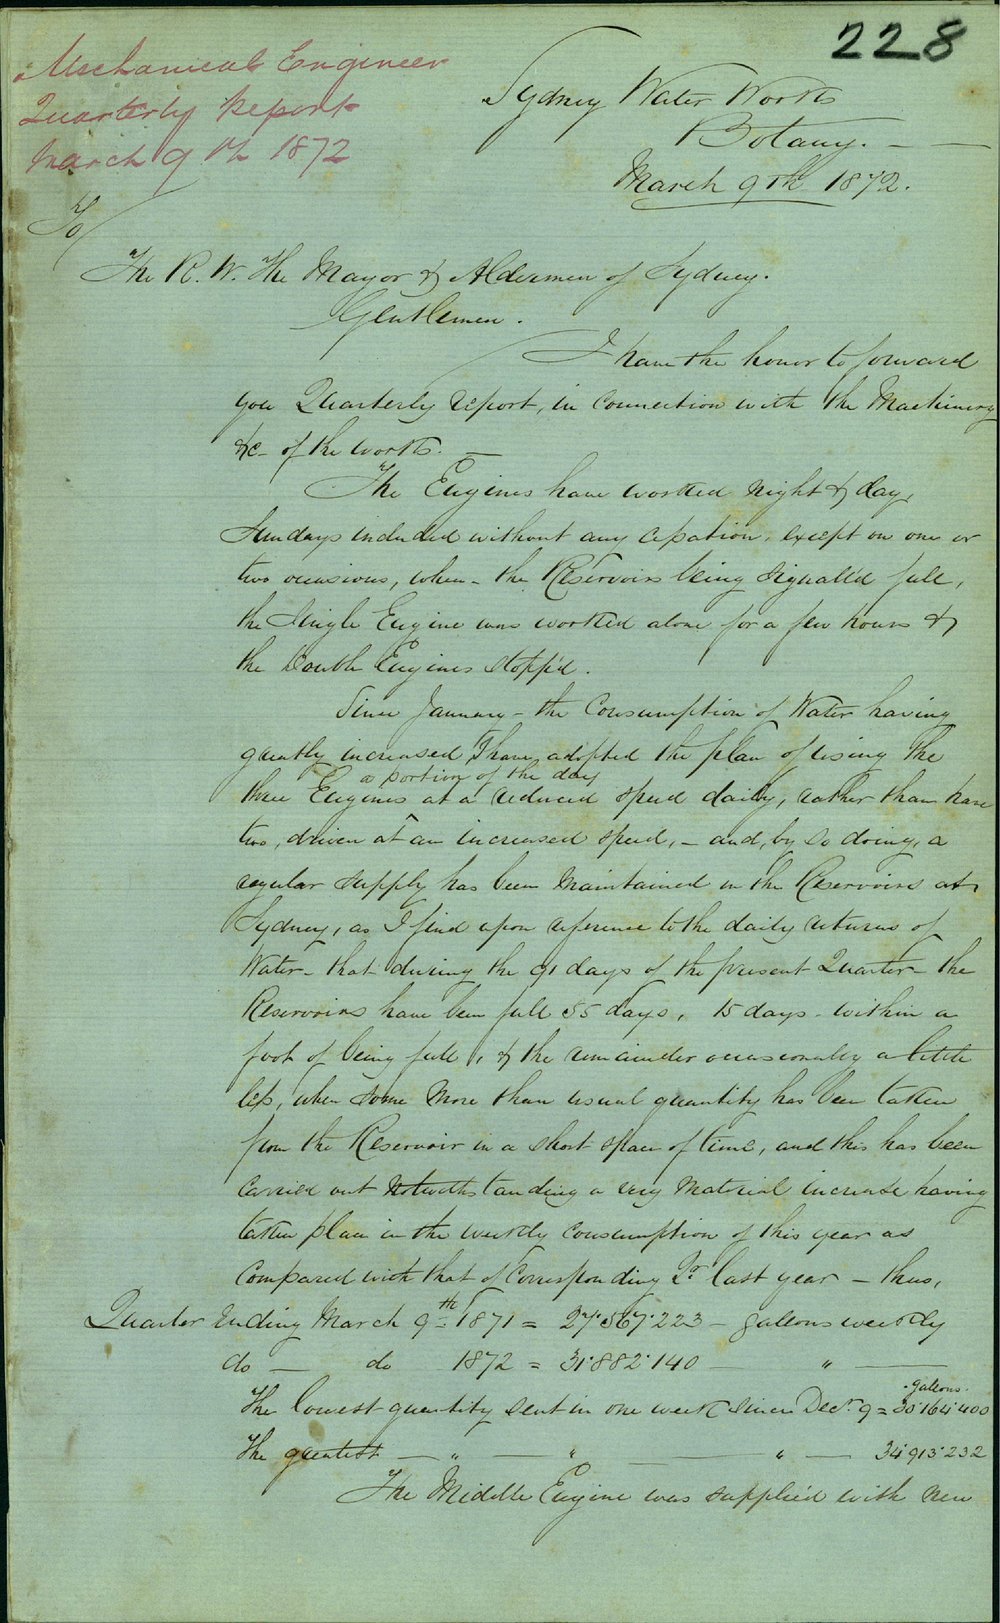 228
Mechanical Engineer
Quarterly Report
March 9th 1872
Sydney Water Works
Botany.
March 9th 1872.
To
The R. W. The Mayor & Aldermen of Sydney.
Gentlemen.
I have the honor to forward
you Quarterly report, in connection with the Machinery
&c- of the works. —
The Engines have worked night & day,
Sundays included without any cessation, except on one or
two occasions, when - the Reservoirs being signall'd full,
the Single Engine was worked alone for a few hours &
the double Engines stopp'd.
Since January - the Consumption of Water having
greatly increased I have adopted the plan of using the
a portion of the day
three Engines at a reduced speed daily, rather than have
two, driven at ^ an increased speed, - and, by so doing, a
regular supply has been maintained in the Reservoirs at
Sydney, as I find upon reference to the daily returns of
Water - that during the 91 days of the present Quarter - the
Reservoirs have been full 55 days, 15 days - within a
foot of being full, & the remainder occasionally a little
less, when some more than usual quantity has been taken
from the Reservoir in a short space of time, and this has been
carried out Notwithstanding a very material increase having
taken place in the weekly consumption of this year as
compared with that of corresponding Qr. last year - thus,
Quarter Ending March 9th 1871 = 27·567·223 - gallons weekly
do — do 1872 = 31·882·140 — " —
gallons.
The lowest quantity sent in one week since Decr. 9 = 30·164·400
The greatest — " — " — " — 34·913·232
The Middle Engine was supplied with new